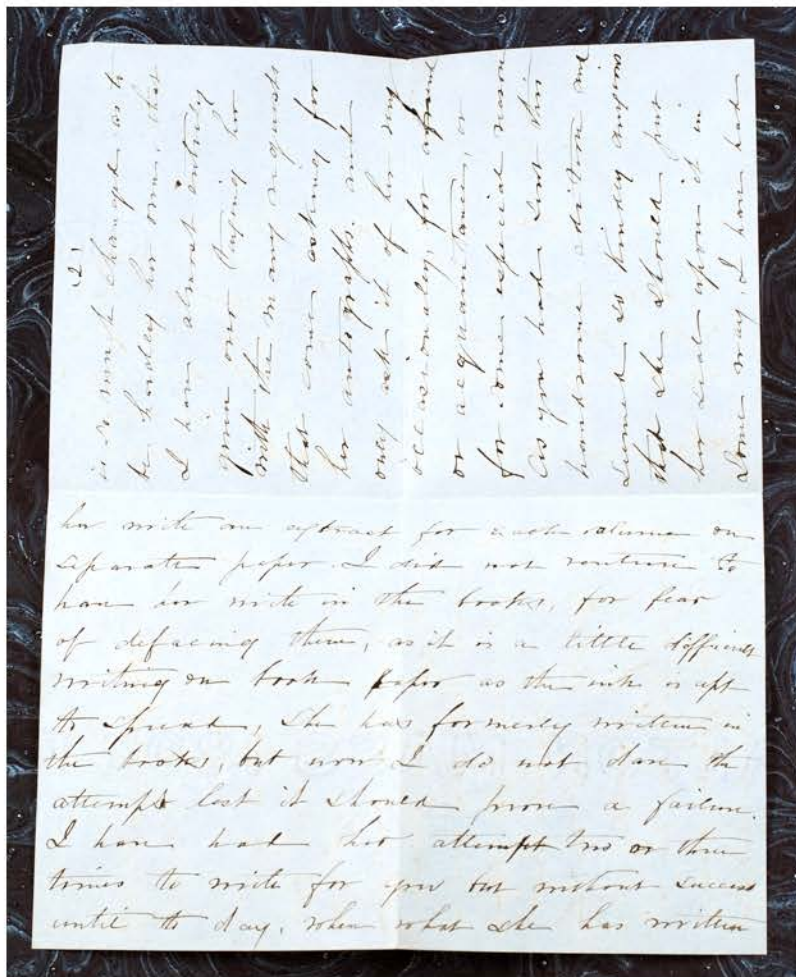 (2)
is so much changed as to
be hardly her own, that
I have almost entirely
given over tasking her
with the many requests
that come asking for
her autograph, and
only ask it of her now
occasionally, for a friend
or acquaintance, or
for some especial reason
As you had sent this
handsome edition and
seemed so kindly anxious
that she should put
her seal upon it in
some way, I have had
her write an extract for each volume on
separate paper. I did not venture to
have her write in the books, for fear
of defacing them, as it is a little difficult
writing on book paper as the ink is apt
to spread, She has formerly written in
the books, but now I do not dare the
attempt lest it should prove a failure.
I have had her attempt two or three
times to write for you but without success
until to day, when what she has written